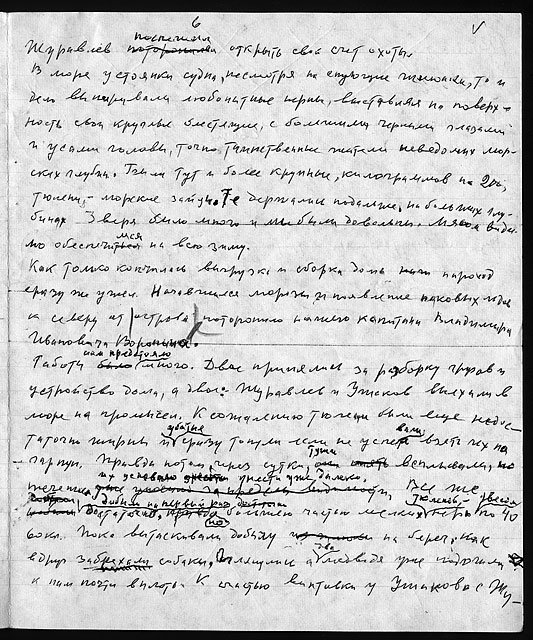 6
Журавлев поспешил открыть свой счет охоты.
В море у стоянки судна, несмотря на снующие шлюпки, то и
дело выныривали любопытные нерпы, выставляя на поверх-
ность свои круглые блестящие, с большими черными глазами
и усами головы, точно таинственные жители неведомых мор-
ских глубин. Были тут и более крупные, килограммов на 200,
тюлени, - морские зайцы. Те держались подальше, на больших глу-
бинах. Зверя было много и мы были довольны. Мясом види-
мо обеспечимся на всю зиму.
Как только кончилась выгрузка и сборка дома пароход
сразу же ушел. Начавшиеся морозы и появление паковых льдов
к северу от острова поторопило нашего капитана Владимира
Ивановича Воронина.
Работы нам предстояло много. Двое принялись за разборку грузов и
устройство дома, а двое: Журавлев и Ушаков выехали в
море на промысел. К сожалению тюлени были еще недос-
таточно жирны и убитые сразу тонули если не успеем взять их на
гарпун. Правда потом, через сутки, туши всплывали, но
течением их успевало унести уже далеко. Все же
добыли на первый раз
достаточно, большею частью мелких тюленей, - нерп по 40
бока. Пока вытаскивали добычу на берег, как
вдруг забрехали собаки, выглянули а два медведя уже подошли
к нам почти вплоть. К счастью винтовки у Ушакова с Жу-